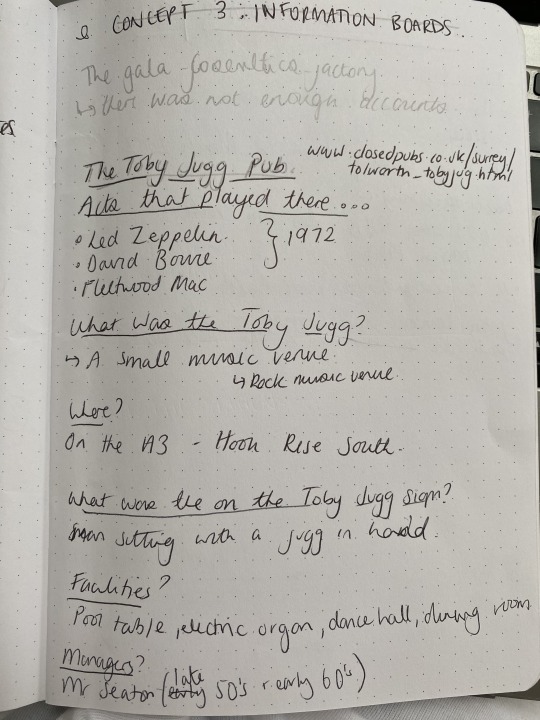 CONCEPT 3. INFORMATION BOARDS.
The gala factory
↳ there was not enough accounts
es
The Toby Jugg Pub. www.closedpubs.co.uk/surrey/
tolworth_tobyjug.html
Acts that played there...
• Led Zeppelin. } 1972
• David Bowie
• Fleetwood Mac
What was the Toby Jugg?
↳ A small music venue.
↳ Rock music venue.
Where?
On the A3 - Hook Rise South.
What was the on the Toby Jugg sign?
Man sitting with a jugg in hand.
Facilities?
Pool table, electric organ, dance hall, dining room
Managers?
Mr Seaton (early late 50's + early 60's)